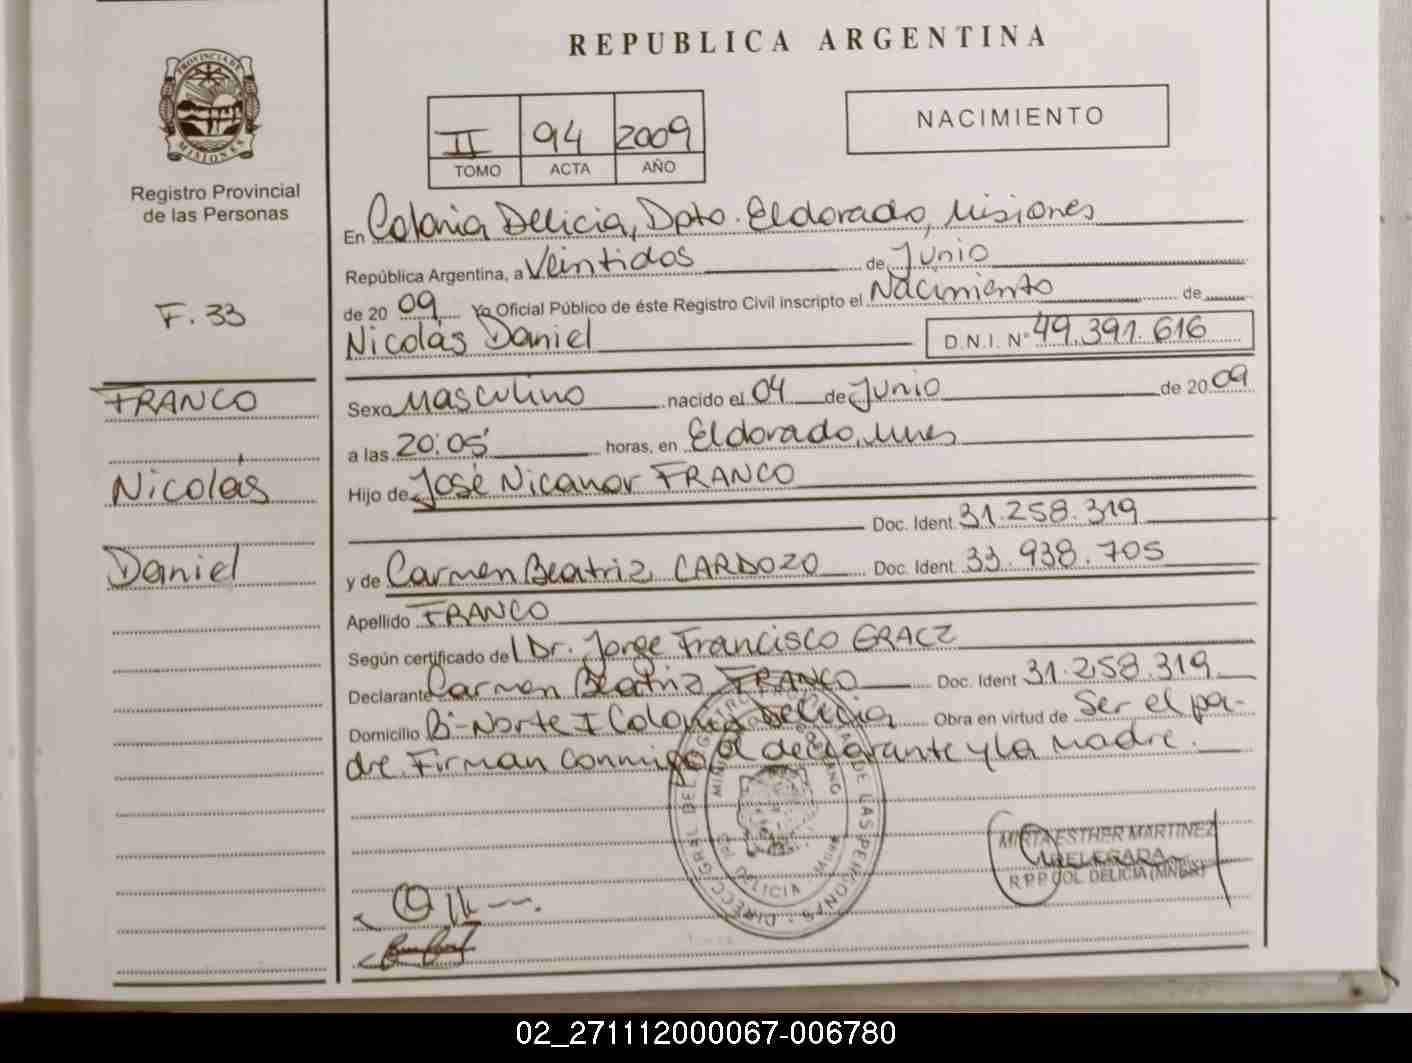 REPUBLICA ARGENTINA
PROVINCIA DE
MISIONES
Registro Provincial
de las Personas
II 94 2009
TOMO ACTA AÑO
NACIMIENTO
F. 33
FRANCO
Nicolás
Daniel
En Colonia Delicia, Dpto. Eldorado, Misiones
República Argentina, a Veintidos de Junio
de 20 09 Yo Oficial Público de éste Registro Civil inscripto el Nacimiento de
Nicolás Daniel D.N.I. Nº 49.391.616
Sexo Masculino nacido el 04 de Junio de 20 09
a las 20:05 horas, en Eldorado, Mnes
Hijo de José Nicanor FRANCO
Doc. Ident. 31.258.319
y de Carmen Beatriz CARDOZO Doc. Ident. 33.938.705
Apellido FRANCO
Según certificado del Dr. Jorge Francisco GRACZ
Declarante Carmen Beatriz FRANCO Doc. Ident 31.258.319
Domicilio B- Norte I Colonia Delicia Obra en virtud de Ser el pa-
dre. Firman conmigo el declarante y la madre.
MIRTA ESTHER MARTINEZ
DELEGADA
R.P.P. COL. DELICIA (MNES)
02_271112000067-006780